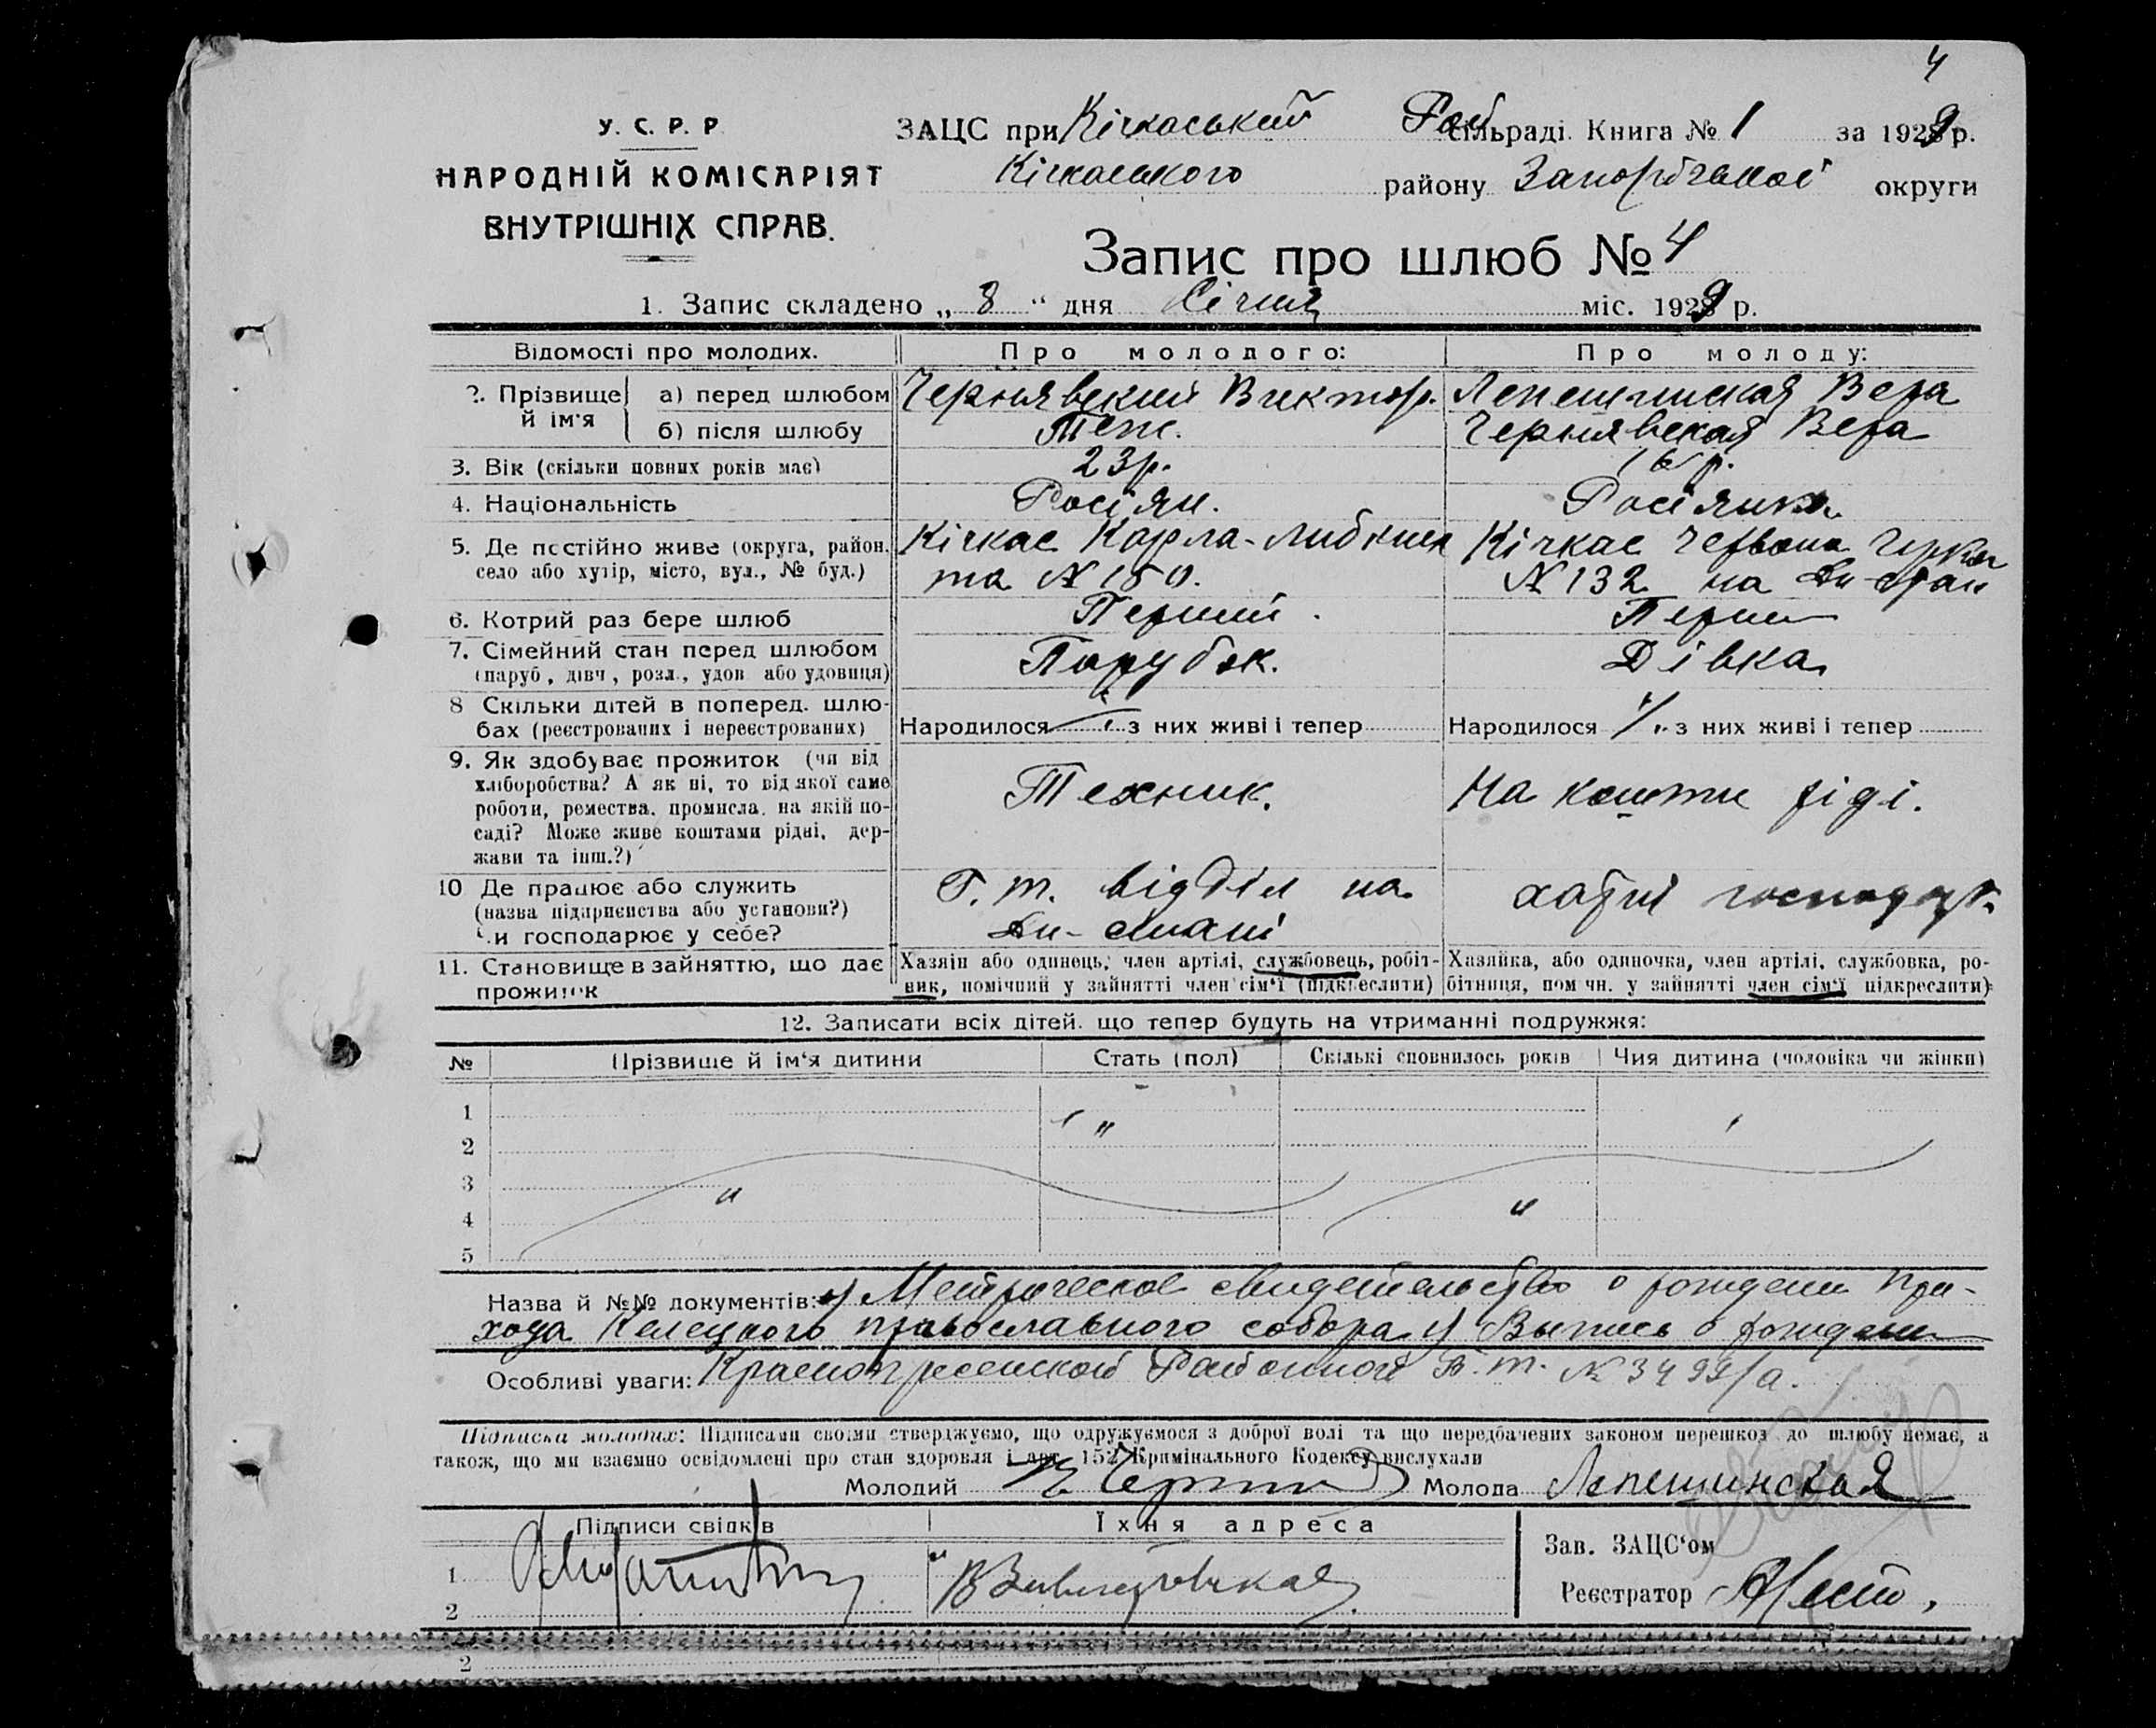 4
У. С. Р. Р
НАРОДНІЙ КОМІСАРІЯТ
ВНУТРІШНІХ СПРАВ.
ЗАЦС при Кічкаський Рай сільраді. Книга № 1 за 1929 р.
Кічкаського району Запоріжської округи
Запис про шлюб № 4
1. Запис складено „ 8 “ дня Січня міс. 1929 р.
Відомості про молодих. Про молодого: Про молоду:
2. Прізвище й ім'я а) перед шлюбом Чернявский Виктор. Лепешинская Вера
б) після шлюбу Теж. Чернявская Вера
3. Вік (скільки повних років має) 23 р. р.
4. Національність Росіян. Росіянка
5. Де постійно живе (округа, район, Кічкас Карла-Либкнех Кічкас Червона
село або хутір, місто, вул., № буд.) та № 150. № 132 на
6. Котрий раз бере шлюб Перший. Перши
7. Сімейний стан перед шлюбом Парубок. Дівка
(паруб, дівч, розл., удов або удовиця)
8 Скільки дітей в поперед. шлю-
бах (реєстрованих і нереєстрованих) Народилося з них живі і тепер Народилося з них живі і тепер
9. Як здобуває прожиток (чи від
хліборобства? А як ні, то від якої саме
роботи, ремества, промисла, на якій по- Техник. На кошти ріді.
саді? Може живе коштами рідні, дер-
жави та інш.?)
10 Де працює або служить Г. т. відділ на хатні
(назва підприємства або установи?)
Чи господарює у себе?
11. Становище в зайняттю, що дає Хазяїн або одинець, член артілі, службовець, робіт- Хазяйка, або одиночка, член артілі, службовка, ро-
прожиток ник, помічний у зайнятті член сім'ї (підкреслити) бітниця, пом чн. у зайнятті член сім'ї підкреслити)
12. Записати всіх дітей, що тепер будуть на утриманні подружжя:
№ Прізвище й ім'я дитини Стать (пол) Скількі сповнилось років Чия дитина (чоловіка чи жінки)
1
2
3
4
5
Назва й №№ документів: Метрическое свидетельство о рождении при-
хода Келецкого православного собора Выпись о рождении
Особливі уваги: Краснопресенской Районной № 3499/а.
Підписка молодих: Підписами своїми стверджуємо, що одружуємося з доброї волі та що передбачених законом перешкод до шлюбу немає, а
також, що ми взаємно освідомлені про стан здоровля і арт. 152 Кримінального Кодексу вислухали
Молодий Молода Лепешинская
Підписи свідків Їхня адреса
Зав. ЗАЦС'ом
1
Реєстратор
2
2